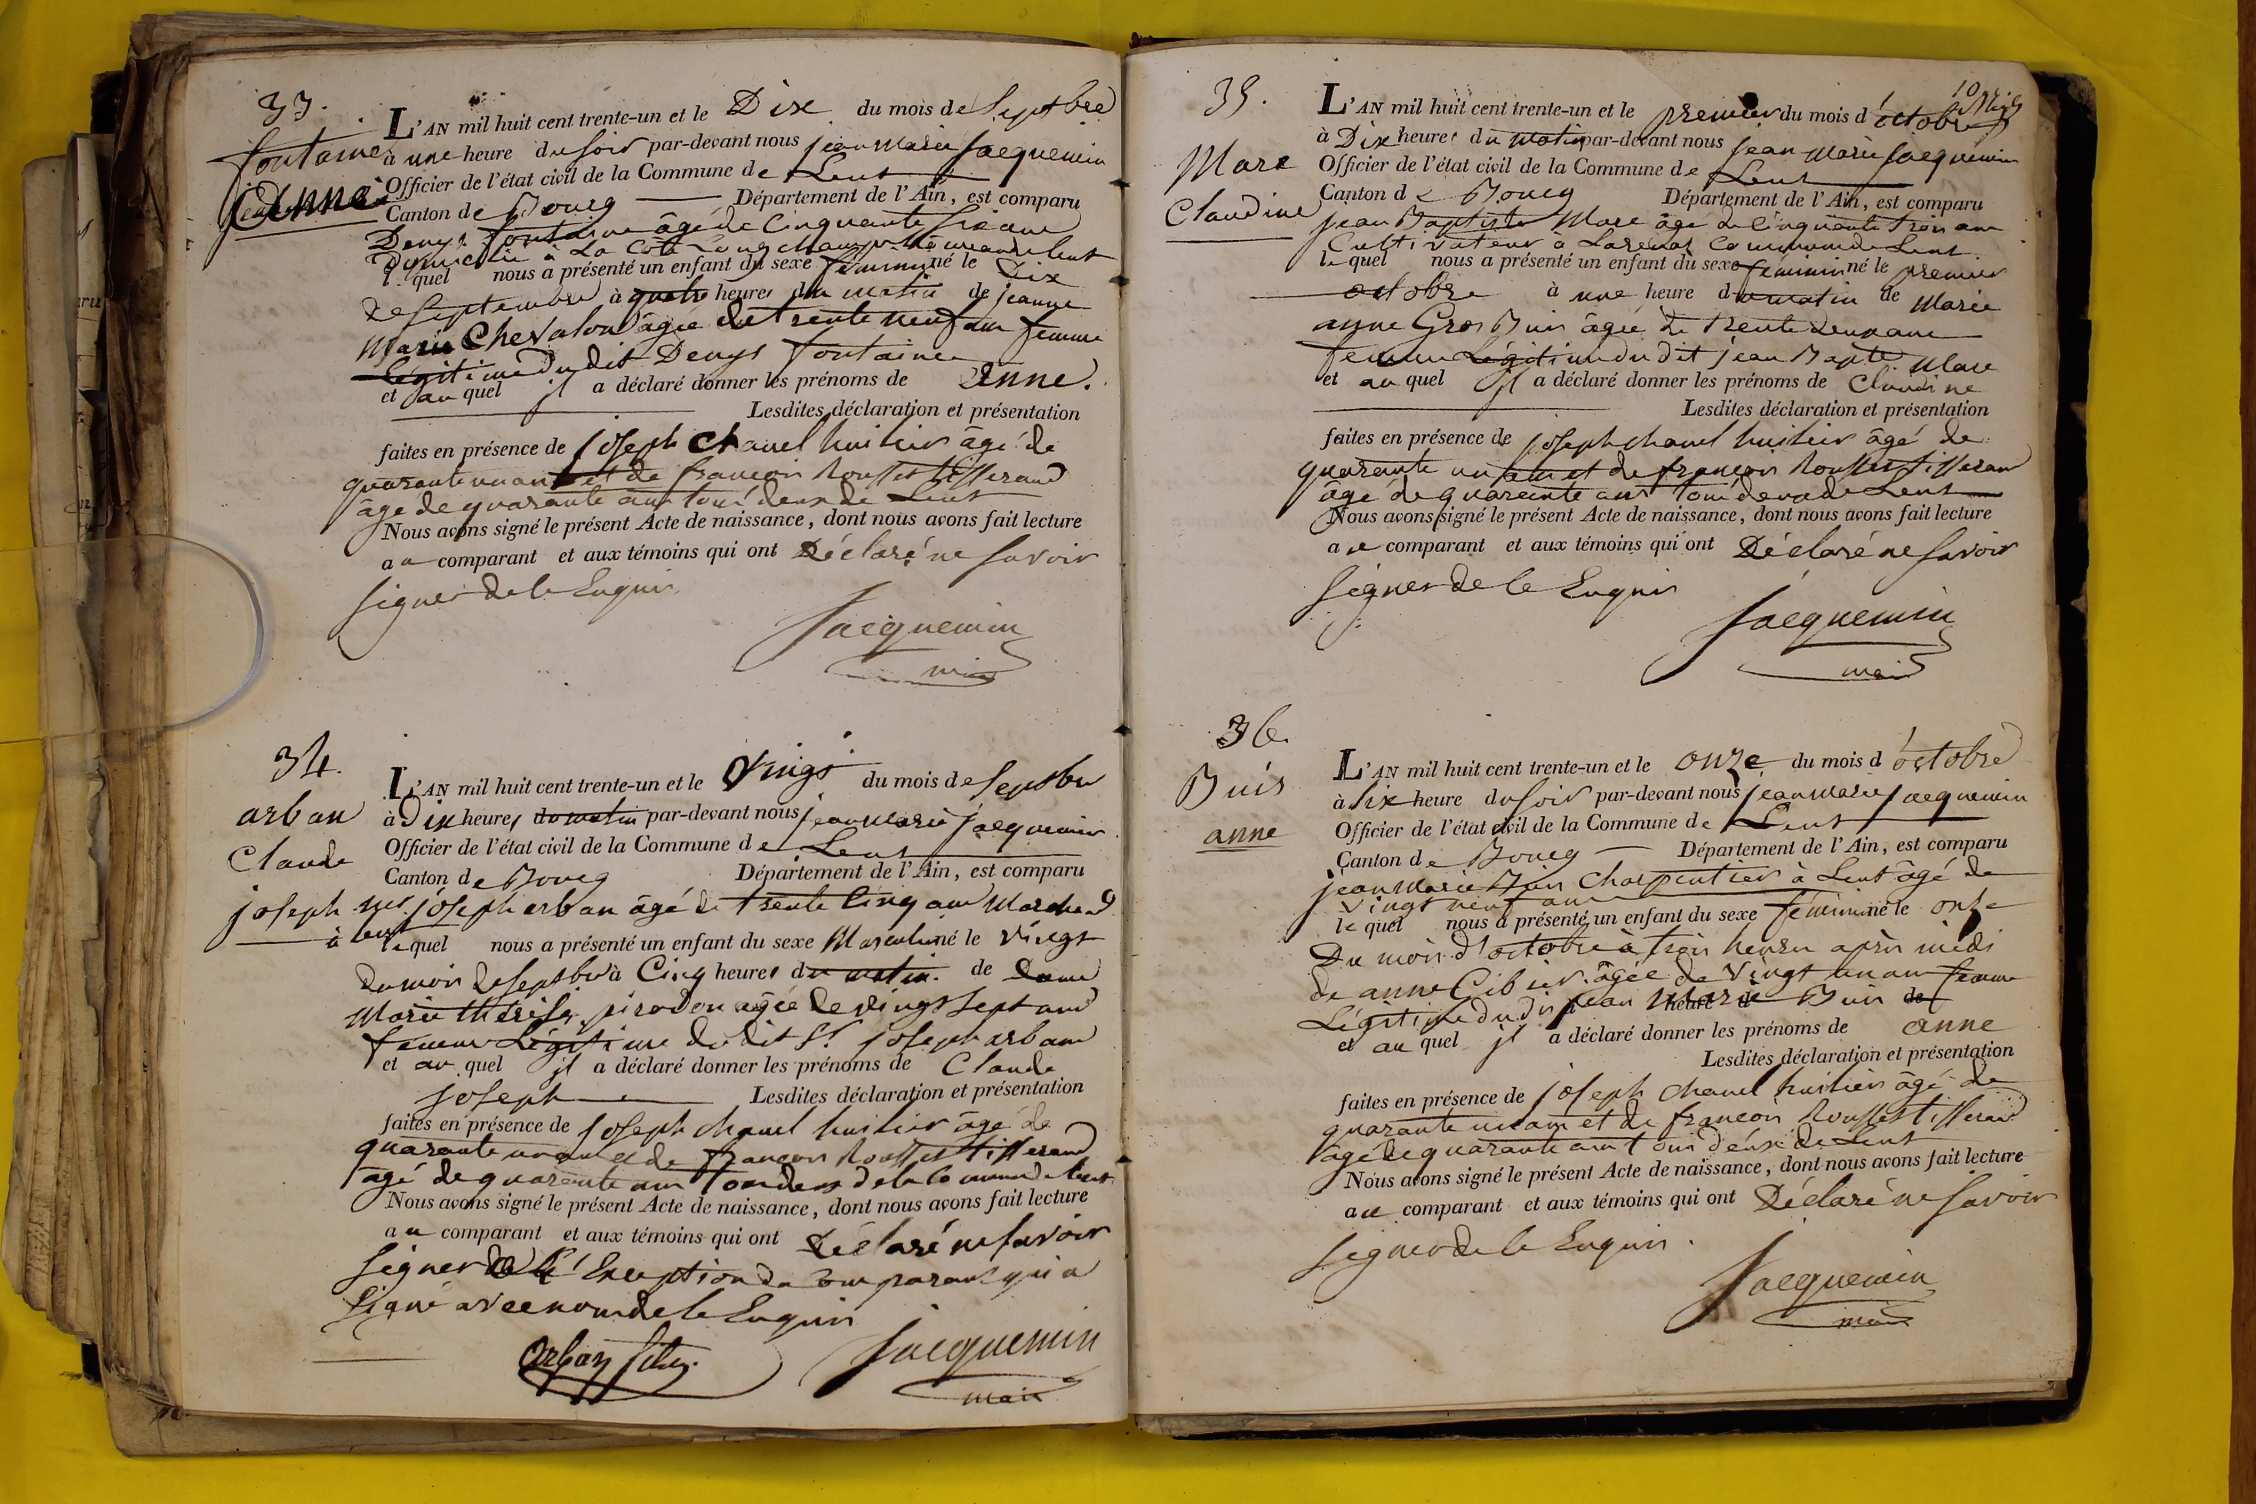 33.
fontaine
anne
L'AN mil huit cent trente-un et le Dix du mois de Septbre
à une heure du soir par-devant nous jean marie jacquemin
Officier de l'état civil de la Commune de Lent
Canton de Bourg Département de l'Ain, est comparu
Denys fontaine âgé de Cinquante six ans
Domicilié à La Cote Longchamp Commune de lent
lequel nous a présenté un enfant du sexe féminin né le Dix
de septembre à quatre heures du matin de jeanne
Marie Chevalon âgée de trente neuf ans femme
Légitime du dit Denys fontaine
et au quel il a déclaré donner les prénoms de anne.
Lesdites déclaration et présentation
faites en présence de joseph chanel huilier âgé de
quarante un ans et de françois Rousset tisserand
âgé de quarante ans tous deux de Lent
Nous avons signé le présent Acte de naissance, dont nous avons fait lecture
au comparant et aux témoins qui ont Déclaré ne savoir
signer de le Enquis
Jacquemin
maire
34.
arban
Claude
joseph
L'AN mil huit cent trente-un et le Vingt du mois de Septbre
à Dix heures du matin par-devant nous jean marie jacquemin
Officier de l'état civil de la Commune de Lent
Canton de Bourg Département de l'Ain, est comparu
mr joseph arban âgé de trente Cinq ans Marchand
à lent lequel nous a présenté un enfant du sexe Masculin né le vingt
du mois de septbre à Cinq heures du matin. de Dame
Marie thérèse pirodon agée de vingt sept ans
femme Légitime du dit Sr joseph arban
et au quel il a déclaré donner les prénoms de Claude
joseph Lesdites déclaration et présentation
faites en présence de joseph chanel huilier âgé de
quarante un ans et de françois Rousset tisserand
âgé de quarante ans tous deux de la Commune de lent
Nous avons signé le présent Acte de naissance, dont nous avons fait lecture
au comparant et aux témoins qui ont Déclaré ne savoir
signer à l'Exception du Comparant qui a
signé avec nous de le Enquis
Arban
Jacquemin
maire
10
35.
Mare
Claudine
L'AN mil huit cent trente-un et le premier du mois d'octobre
à Dix heures du matin par-devant nous jean marie jacquemin
Officier de l'état civil de la Commune de Lent
Canton de Bourg Département de l'Ain, est comparu
jean Baptiste Mare âgé de Cinquante trois ans
Cultivateur a Commune de Lent
lequel nous a présenté un enfant du sexe féminin né le premier
octobre à une heure du matin de Marie
anne Gros Buis âgée de trente deux ans
femme Légitime du dit jean Bapte Mare
et au quel il a déclaré donner les prénoms de Claudine
Lesdites déclaration et présentation
faites en présence de joseph chanel huilier âgé de
quarante un ans et de françois Rousset tisserand
âgé de quarante ans tous deux de Lent
Nous avons signé le présent Acte de naissance, dont nous avons fait lecture
au comparant et aux témoins qui ont Déclaré ne savoir
signer de le Enquis
Jacquemin
maire
36.
Buis
anne
L'AN mil huit cent trente-un et le onze du mois d'octobre
à six heure du soir par-devant nous jean marie jacquemin
Officier de l'état civil de la Commune de Lent
Canton de Bourg Département de l'Ain, est comparu
jean Marie Buis Charpentier à Lent âgé de
vingt neuf ans
lequel nous a présenté un enfant du sexe féminin né le onze
Du mois d'octobre à trois heures après midi
de anne Cibier âgée de vingt un ans femme
Légitime du dit jean heure d Marie Buis de
et au quel il a déclaré donner les prénoms de anne
Lesdites déclaration et présentation
faites en présence de joseph chanel huilier âgé de
quarante un ans et de françois Rousset tisserand
âgé de quarante ans tous deux de Lent
Nous avons signé le présent Acte de naissance, dont nous avons fait lecture
au comparant et aux témoins qui ont Déclaré ne savoir
signer de le Enquis.
Jacquemin
maire